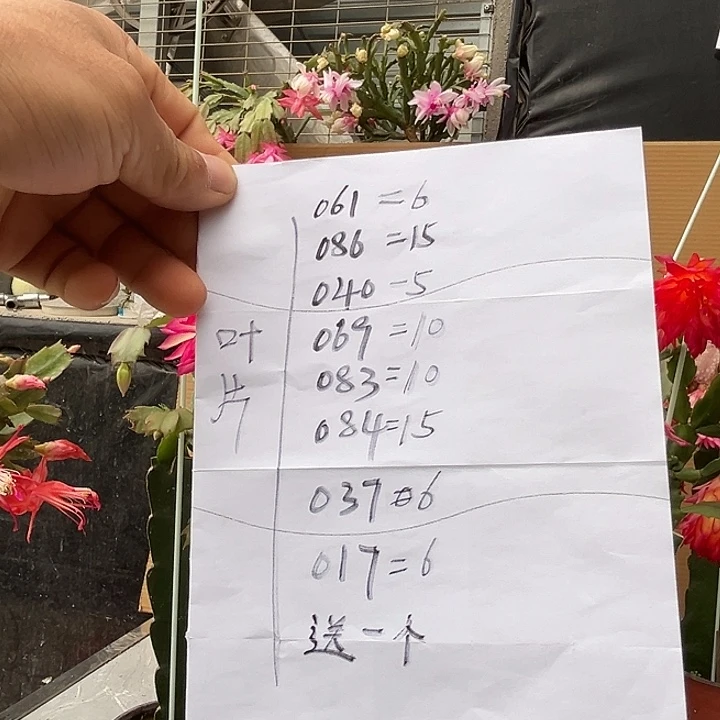 061=6
086=15
040-5
叶片
069=10
083=10
084=15
037=6
017=6
送一个